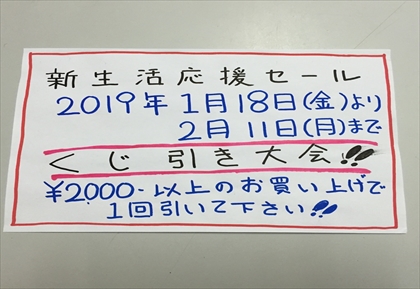 新生活応援セール
2019年1月18日(金)より
2月11日(月)まで
くじ引き大会!!
¥2,000-以上のお買い上げで
1回引いて下さい!!